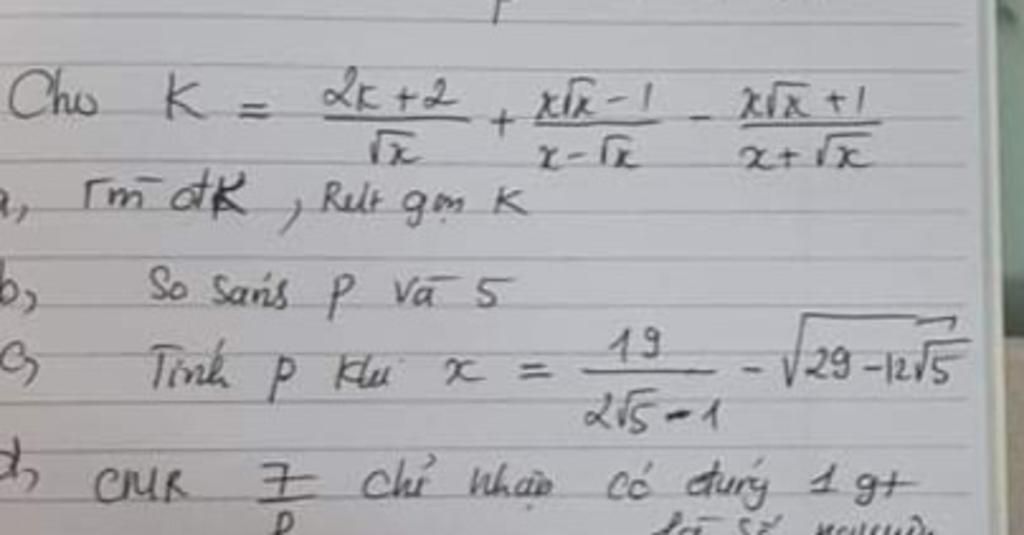 Cho K = \frac{2x+2}{\sqrt{x}} + \frac{x\sqrt{x}-1}{x-\sqrt{x}} - \frac{x\sqrt{x}+1}{x+\sqrt{x}}
a, Tìm đK, Rút gọn K
b, So sánh P và 5
c, Tính P khi x = \frac{19}{2\sqrt{5}-1} - \sqrt{29-12\sqrt{5}}
d, CMR \frac{7}{P} chỉ nhận có đúng 1 gt
là số nguyên